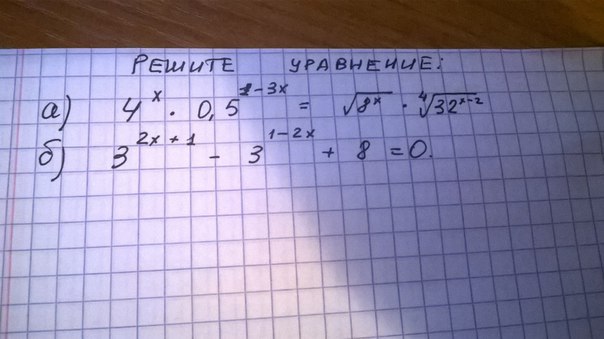 РЕШИТЕ УРАВНЕНИЕ:
а) 4^x · 0,5^{1-3x} = √(8^x) · ⁴√(32^{x-2})
б) 3^{2x+1} - 3^{1-2x} + 8 = 0.